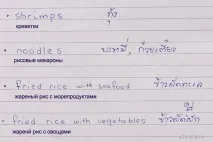 • shrimps กุ้ง
креветки
• noodles บะหมี่, ก๋วยเตี๋ยว
рисовые макароны
• fried rice with seafood ข้าวผัดทะเล
жареный рис с морепродуктами
• fried rice with vegetables ข้าวผัดผัก
жареный рис с овощами